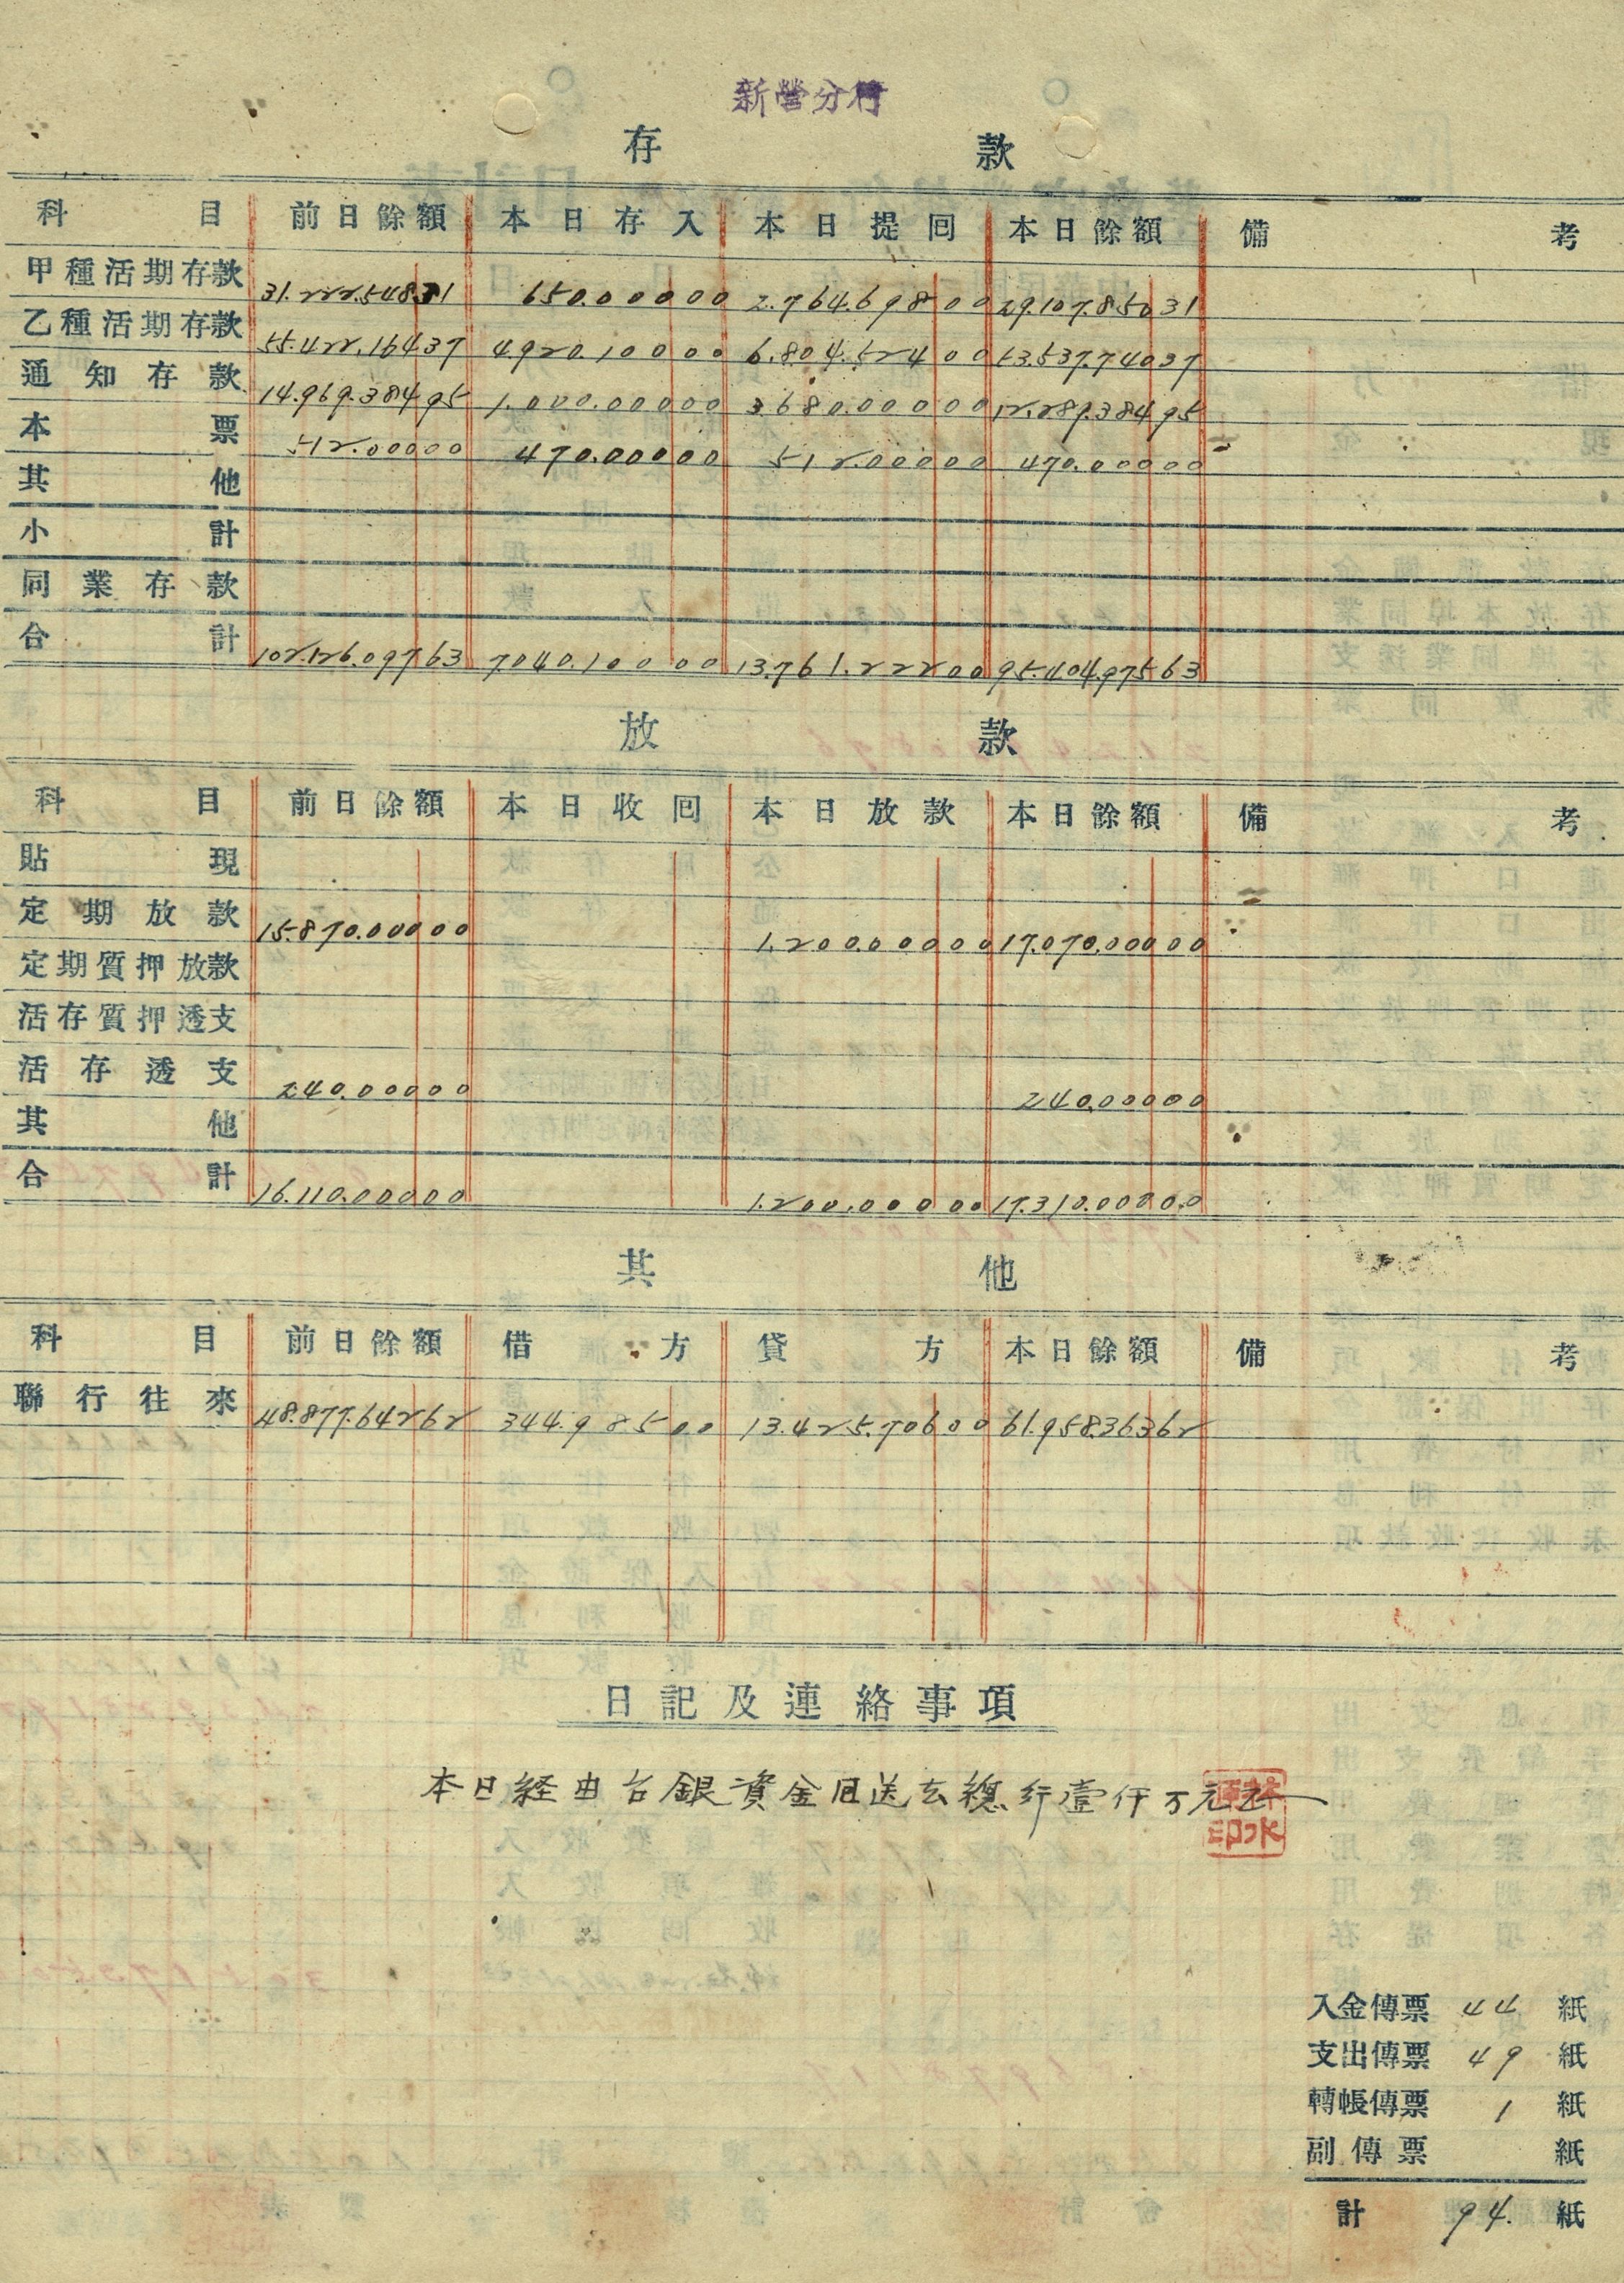 新營分行
存 款
科目 前日餘額 本日存入 本日提回 本日餘額 備考
甲種活期存款 31.222.548 31 650.000 00 2.764.698 00 29.107.850 31
乙種活期存款 55.422.164 37 4.920.100 00 6.804.524 00 53.537.740 37
通知存款 14.969.384 95 1.000.000 00 3.680.000 00 12.289.384 95
本票 512.000 00 470.000 00 512.000 00 470.000 00
其他
小計
同業存款
合計 102.126.097 63 7.040.100 00 13.761.222 00 95.404.975 63
放 款
科目 前日餘額 本日收回 本日放款 本日餘額 備考
貼現
定期放款 15.870.000 00 1.200.000 00 17.070.000 00
定期質押放款
活存質押透支
活存透支 240.000 00 240.000 00
其他
合計 16.110.000 00 1.200.000 00 17.310.000 00
其 他
科目 前日餘額 借方 貸方 本日餘額 備考
聯行往來 48.877.642 62 344.985 00 13.425.706 00 61.958.363 62
日記及連絡事項
本日経由台銀資金回送去總行壹仟万元
入金傳票 44 紙
支出傳票 49 紙
轉帳傳票 1 紙
副傳票 紙
計 94. 紙